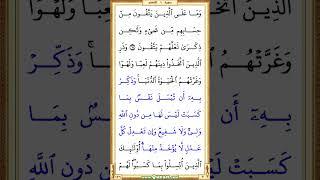 وَمَا عَلَى ٱلَّذِينَ يَتَّقُونَ مِنْ
حِسَابِهِم مِّن شَىْءٍ وَلَٰكِن
ذِكْرَىٰ لَعَلَّهُمْ يَتَّقُونَ ۝ وَذَرِ
ٱلَّذِينَ ٱتَّخَذُوا۟ دِينَهُمْ لَعِبًا وَلَهْوًا
وَغَرَّتْهُمُ ٱلْحَيَوٰةُ ٱلدُّنْيَا ۚ وَذَكِّرْ
بِهِۦٓ أَن تُبْسَلَ نَفْسٌۢ بِمَا
كَسَبَتْ لَيْسَ لَهَا مِن دُونِ ٱللَّهِ
وَلِىٌّ وَلَا شَفِيعٌ وَإِن تَعْدِلْ كُلَّ
عَدْلٍ لَّا يُؤْخَذْ مِنْهَآ ۗ أُو۟لَٰٓئِكَ
ٱلَّذِينَ أُبْسِلُوا۟ بِمَا كَسَبُوا۟ ۖ لَهُمْ